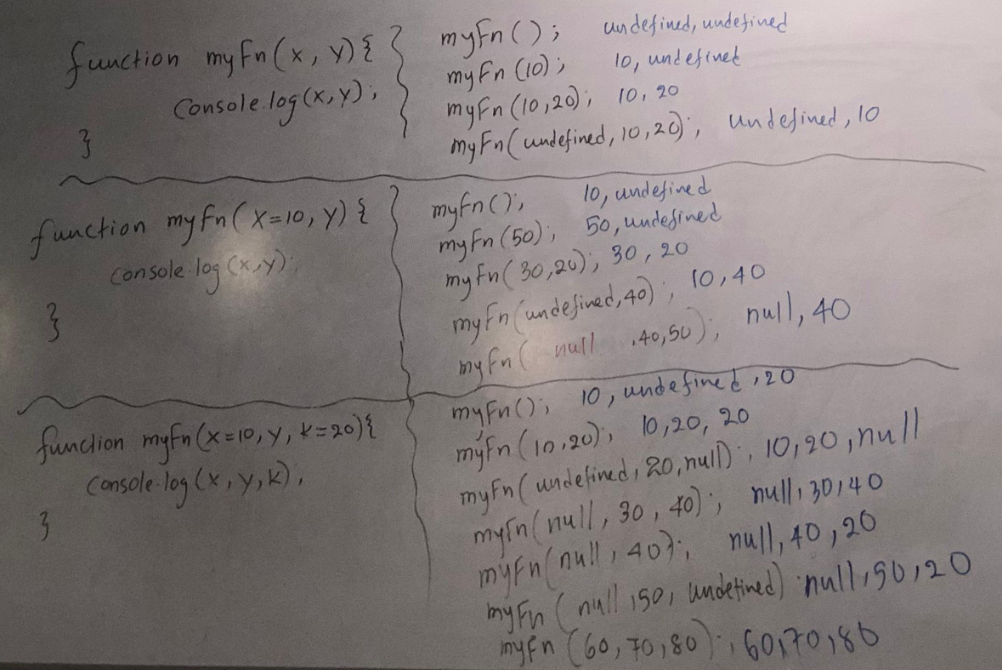 function myFn(x, y){
console.log(x,y);
}
myFn(); undefined, undefined
myFn(10); 10, undefined
myFn(10,20); 10, 20
myFn(undefined,10,20); undefined, 10
function myFn(x=10, y) {
console.log(x,y);
}
myFn(); 10, undefined
myFn(50); 50, undefined
myFn(30,20); 30, 20
myFn(undefined,40); 10, 40
myFn( null ,40,50); null, 40
function myFn(x=10, y, k=20){
console.log(x, y, k);
}
myFn(); 10, undefined, 20
myFn(10,20); 10,20, 20
myFn(undefined, 20, null); 10, 20, null
myFn(null, 30, 40); null, 30, 40
myFn(null, 40); null, 40, 20
myFn(null, 50, undefined) null, 50, 20
myFn(60, 70, 80); 60, 70, 80